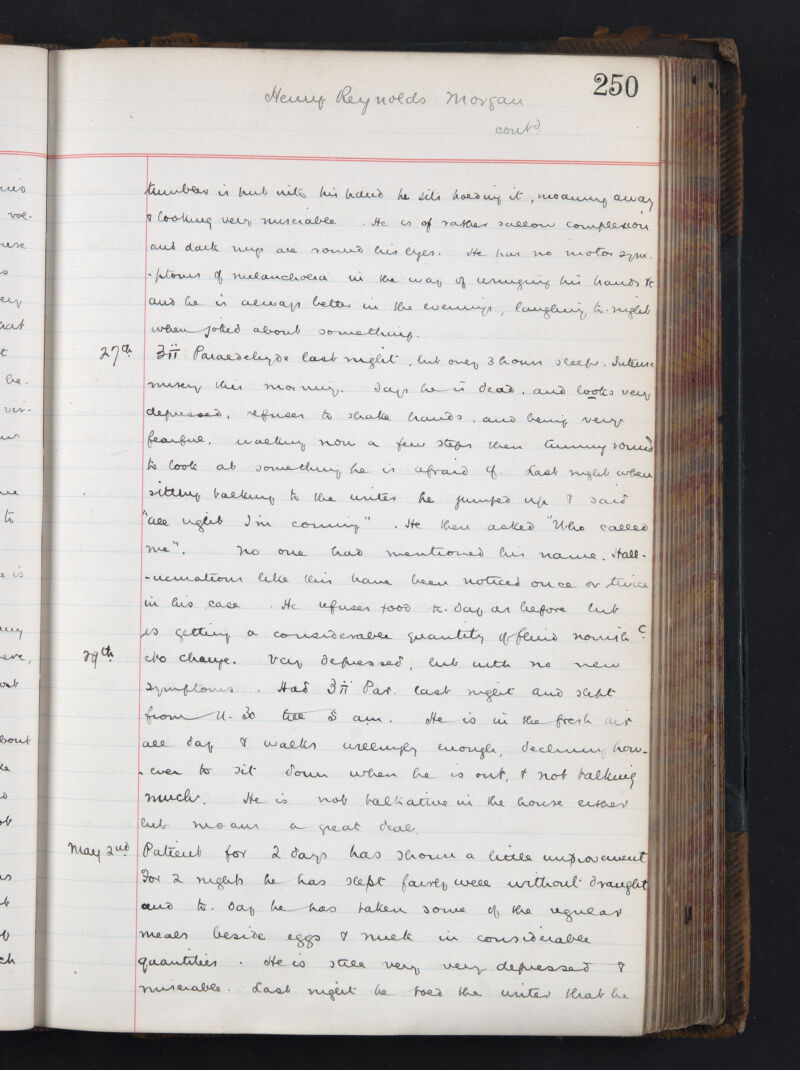 250
Henry Reynolds Morgan
contd.
tumbler is put into his hand he sits holding it, moaning away
& looking very miserable. He is of rather sallow complexion
and dark rings are round his eyes. He has no motor sym-
-ptoms of melancholia in the way of wringing his hands &c
and he is always better in the evenings, laughing to-night
when joked about something.
27th. ʒii Paraldehyde last night, but only 3 hours sleep. Intense
misery this morning. Says he is dead, and looks very
depressed, refuses to shake hands, and being very
fearful, walking now a few steps then turning round
to look at something he is afraid of. Last night when
sitting talking to the writer he jumped up & said
"all right I'm coming". He then asked "Who called
me". No one had mentioned his name. Hall-
-ucinations like this have been noticed once or twice
in his case. He refuses food to-day as before but
is getting a considerable quantity of fluid nourish
29th. No change. Very depressed, but with no new
symptoms. Had ʒii Par. last night and slept
from 11-30 till 5 am. He is in the fresh air
all day & walks willingly enough, declining how-
-ever to sit down when he is out, & not talking
much. He is not talkative in the house either
but moans a great deal.
May 2nd. Patient for 2 days has shown a little improvement
For 2 nights he has slept fairly well without draught
and to-day he has taken some of the regular
meals beside eggs & milk in considerable
quantities. He is still very very depressed &
miserable. Last night he told the writer that he